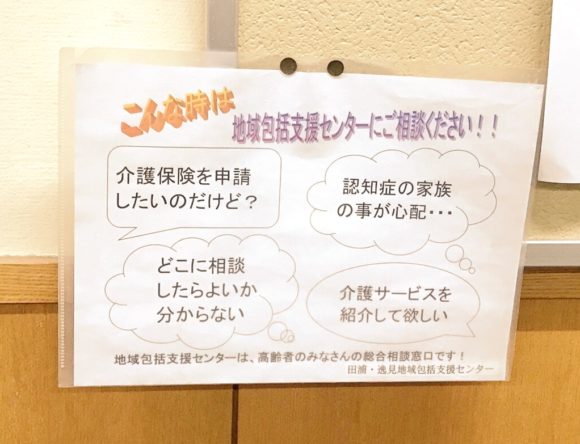 こんな時は
地域包括支援センターにご相談ください！！
介護保険を申請
したいのだけど？
認知症の家族
の事が心配・・・
どこに相談
したらよいか
分からない
介護サービスを
紹介して欲しい
地域包括支援センターは、高齢者のみなさんの総合相談窓口です！
田浦・逸見地域包括支援センター